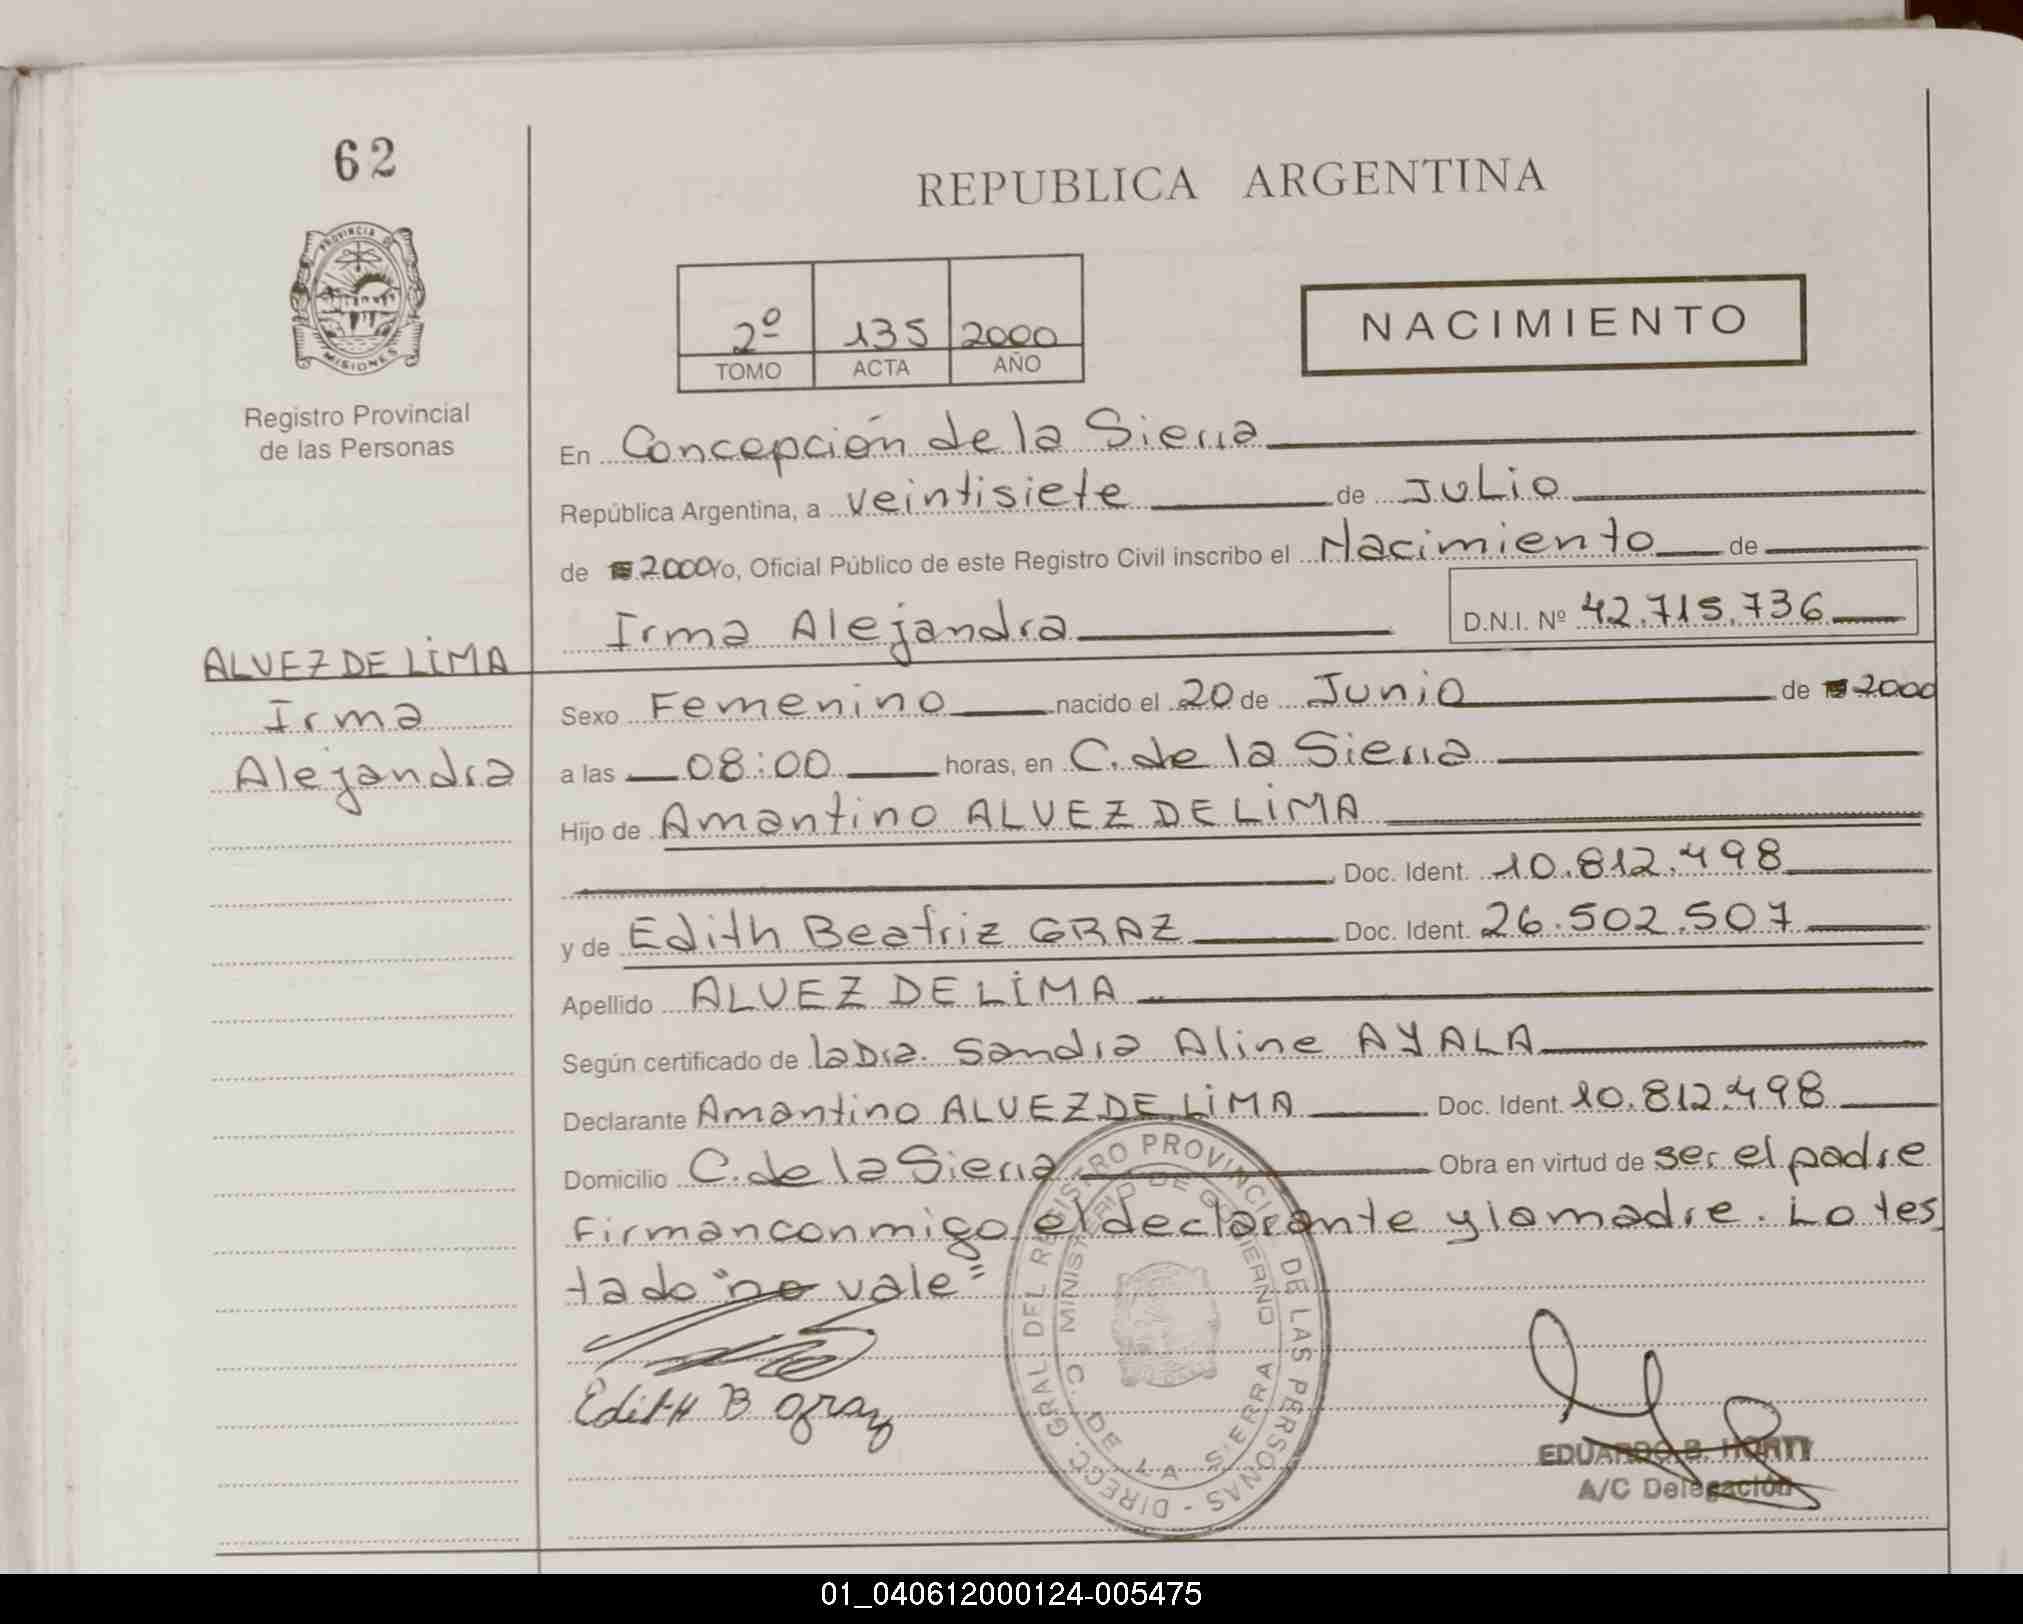 62
REPUBLICA ARGENTINA
PROVINCIA DE
MISIONES
Registro Provincial
de las Personas
2º 135 2000
TOMO ACTA AÑO
NACIMIENTO
En Concepción de la Sierra
República Argentina, a veintisiete de JuLio
de 2000 yo, Oficial Público de este Registro Civil inscribo el Nacimiento de
Irma Alejandra D.N.I. Nº 42.715.736
ALVEZ DE LIMA
Irma
Alejandra
Sexo Femenino nacido el 20 de Junio de 2000
a las 08:00 horas, en C. de la Sierra
Hijo de Amantino ALVEZ DE LIMA
Doc. Ident. 10.812.498
y de Edith Beatriz GRAZ Doc. Ident. 26.502.507
Apellido ALVEZ DE LIMA
Según certificado de la Dra. Sandra Aline AYALA
Declarante Amantino ALVEZ DE LIMA Doc. Ident. 10.812.498
Domicilio C. de la Sierra Obra en virtud de ser el padre
Firman conmigo el declarante y la madre. Lo tes
tado "no vale"
Edith B graz
DIRECC. GRAL. DEL REGISTRO PROVINCIAL DE LAS PERSONAS
MINISTERIO DE GOBIERNO
C. DE LA SIERRA
EDUARDO B. HORTT
A/C Delegación
01_040612000124-005475